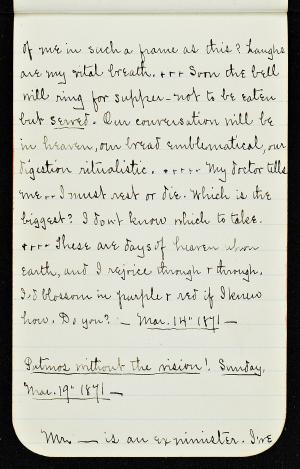 of me in such a frame as this? Laughs
are my vital breath. + + + Soon the bell
will ring for supper - not to be eaten
but served. Our conversation will be
in heaven, our bread emblematical, our
digestion ritualistic. + + + + + My doctor tells
me .. I must rest or die. Which is the
biggest? I dont know which to take.
+ + + + These are days of heaven upon
earth, and I rejoice through & through.
I'd blossom in purple & red if I knew
how. Do you? - Mar. 14th 1871 -
Patmos without the vision! Sunday,
Mar. 19th 1871 -
Mr. — is an ex minister. I've